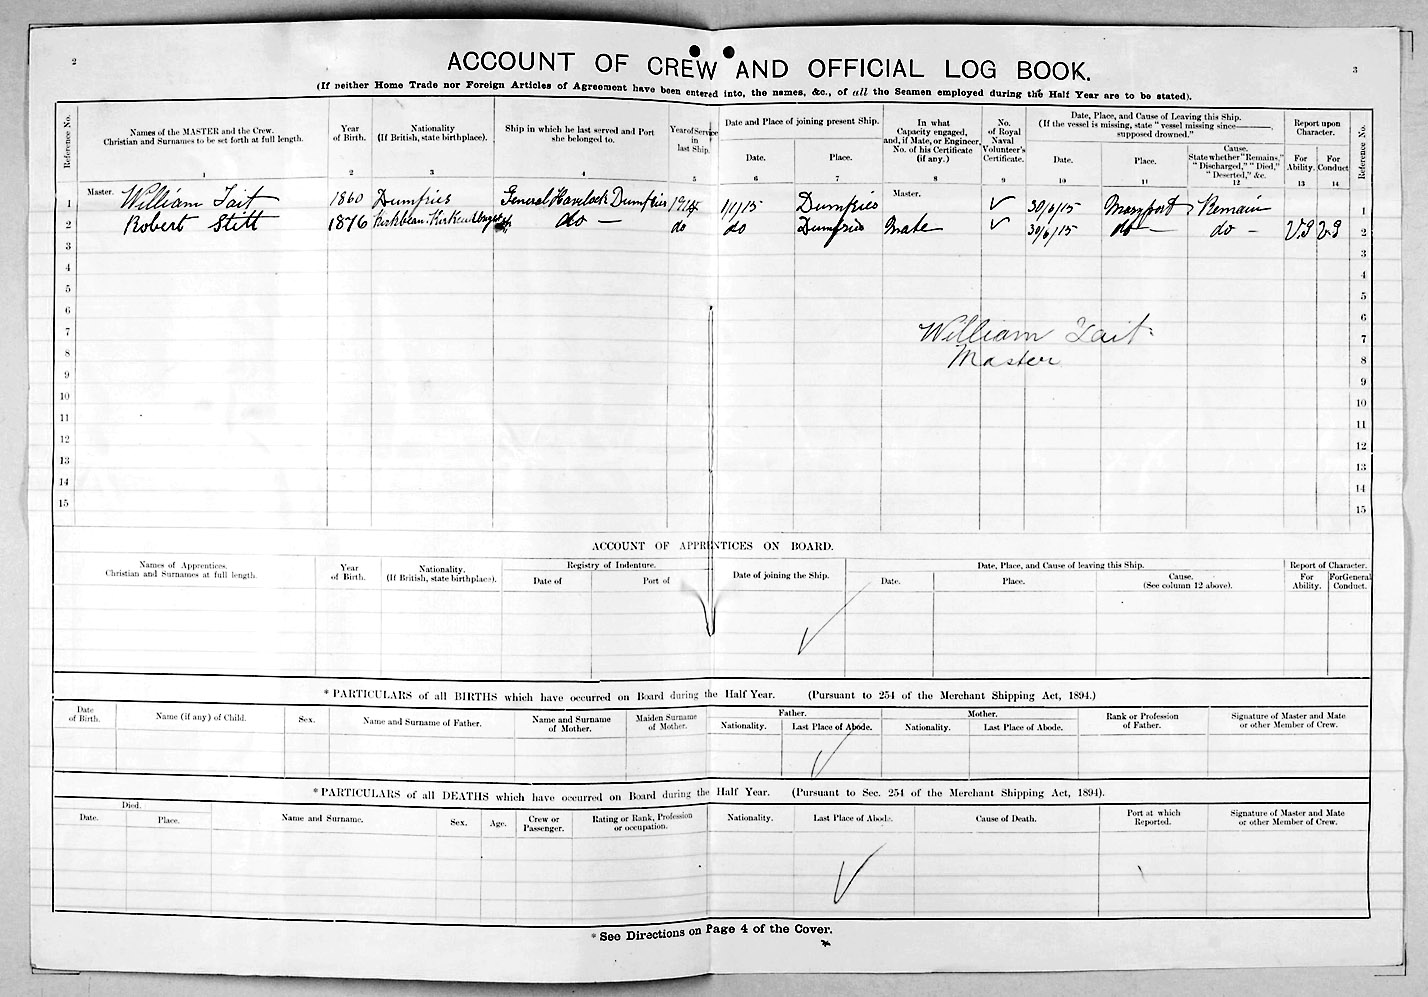 2
3
ACCOUNT OF CREW AND OFFICIAL LOG BOOK.
(If neither Home Trade nor Foreign Articles of Agreement have been entered into, the names, &c., of all the Seamen employed during the Half Year are to be stated).
Reference No.
Names of the MASTER and the Crew.
Christian and Surnames to be set forth at full length.
1
Year of Birth.
2
Nationality
(If British, state birthplace).
3
Ship in which he last served and Port she belonged to.
4
Year of Service in last Ship.
5
Date and Place of joining present Ship.
Date.
6
Place.
7
In what Capacity engaged, and, if Mate, or Engineer, No. of his Certificate (if any.)
8
No. of Royal Naval Volunteer's Certificate.
9
Date, Place, and Cause of Leaving this Ship.
(If the vessel is missing, state "vessel missing since———, supposed drowned."
Date.
10
Place.
11
Cause.
State whether "Remains," "Discharged," "Died," "Deserted," &c.
12
Report upon Character.
For Ability.
13
For Conduct
14
Reference No.
1 Master. William Tait 1860 Dumfries General Havelock Dumfries 1914 1/1/15 Dumfries Master. ✓ 30/6/15 Maryport Remain 1
2 Robert Stitt 1876 Kirkbean. Kirkcudbright do — do do Dumfries Mate ✓ 30/6/15 do — do — V.G V.G 2
3 3
4 4
5 5
6 6
7 William Tait 7
8 Master 8
9 9
10 10
11 11
12 12
13 13
14 14
15 15
ACCOUNT OF APPRENTICES ON BOARD.
Names of Apprentices.
Christian and Surnames at full length.
Year of Birth.
Nationality.
(If British, state birthplace).
Registry of Indenture.
Date of
Port of
Date of joining the Ship.
Date, Place, and Cause of leaving this Ship.
Date.
Place.
Cause.
(See column 12 above).
Report of Character.
For Ability.
For General Conduct.
✓
* PARTICULARS of all BIRTHS which have occurred on Board during the Half Year. (Pursuant to 254 of the Merchant Shipping Act, 1894.)
Date of Birth.
Name (if any) of Child.
Sex.
Name and Surname of Father.
Name and Surname of Mother.
Maiden Surname of Mother.
Father.
Nationality.
Last Place of Abode.
Mother.
Nationality.
Last Place of Abode.
Rank or Profession of Father.
Signature of Master and Mate or other Member of Crew.
✓
* PARTICULARS of all DEATHS which have occurred on Board during the Half Year. (Pursuant to Sec. 254 of the Merchant Shipping Act, 1894).
Died.
Date.
Place.
Name and Surname.
Sex.
Age.
Crew or Passenger.
Rating or Rank, Profession or occupation.
Nationality.
Last Place of Abode.
Cause of Death.
Port at which Reported.
Signature of Master and Mate or other Member of Crew.
✓
* See Directions on Page 4 of the Cover.